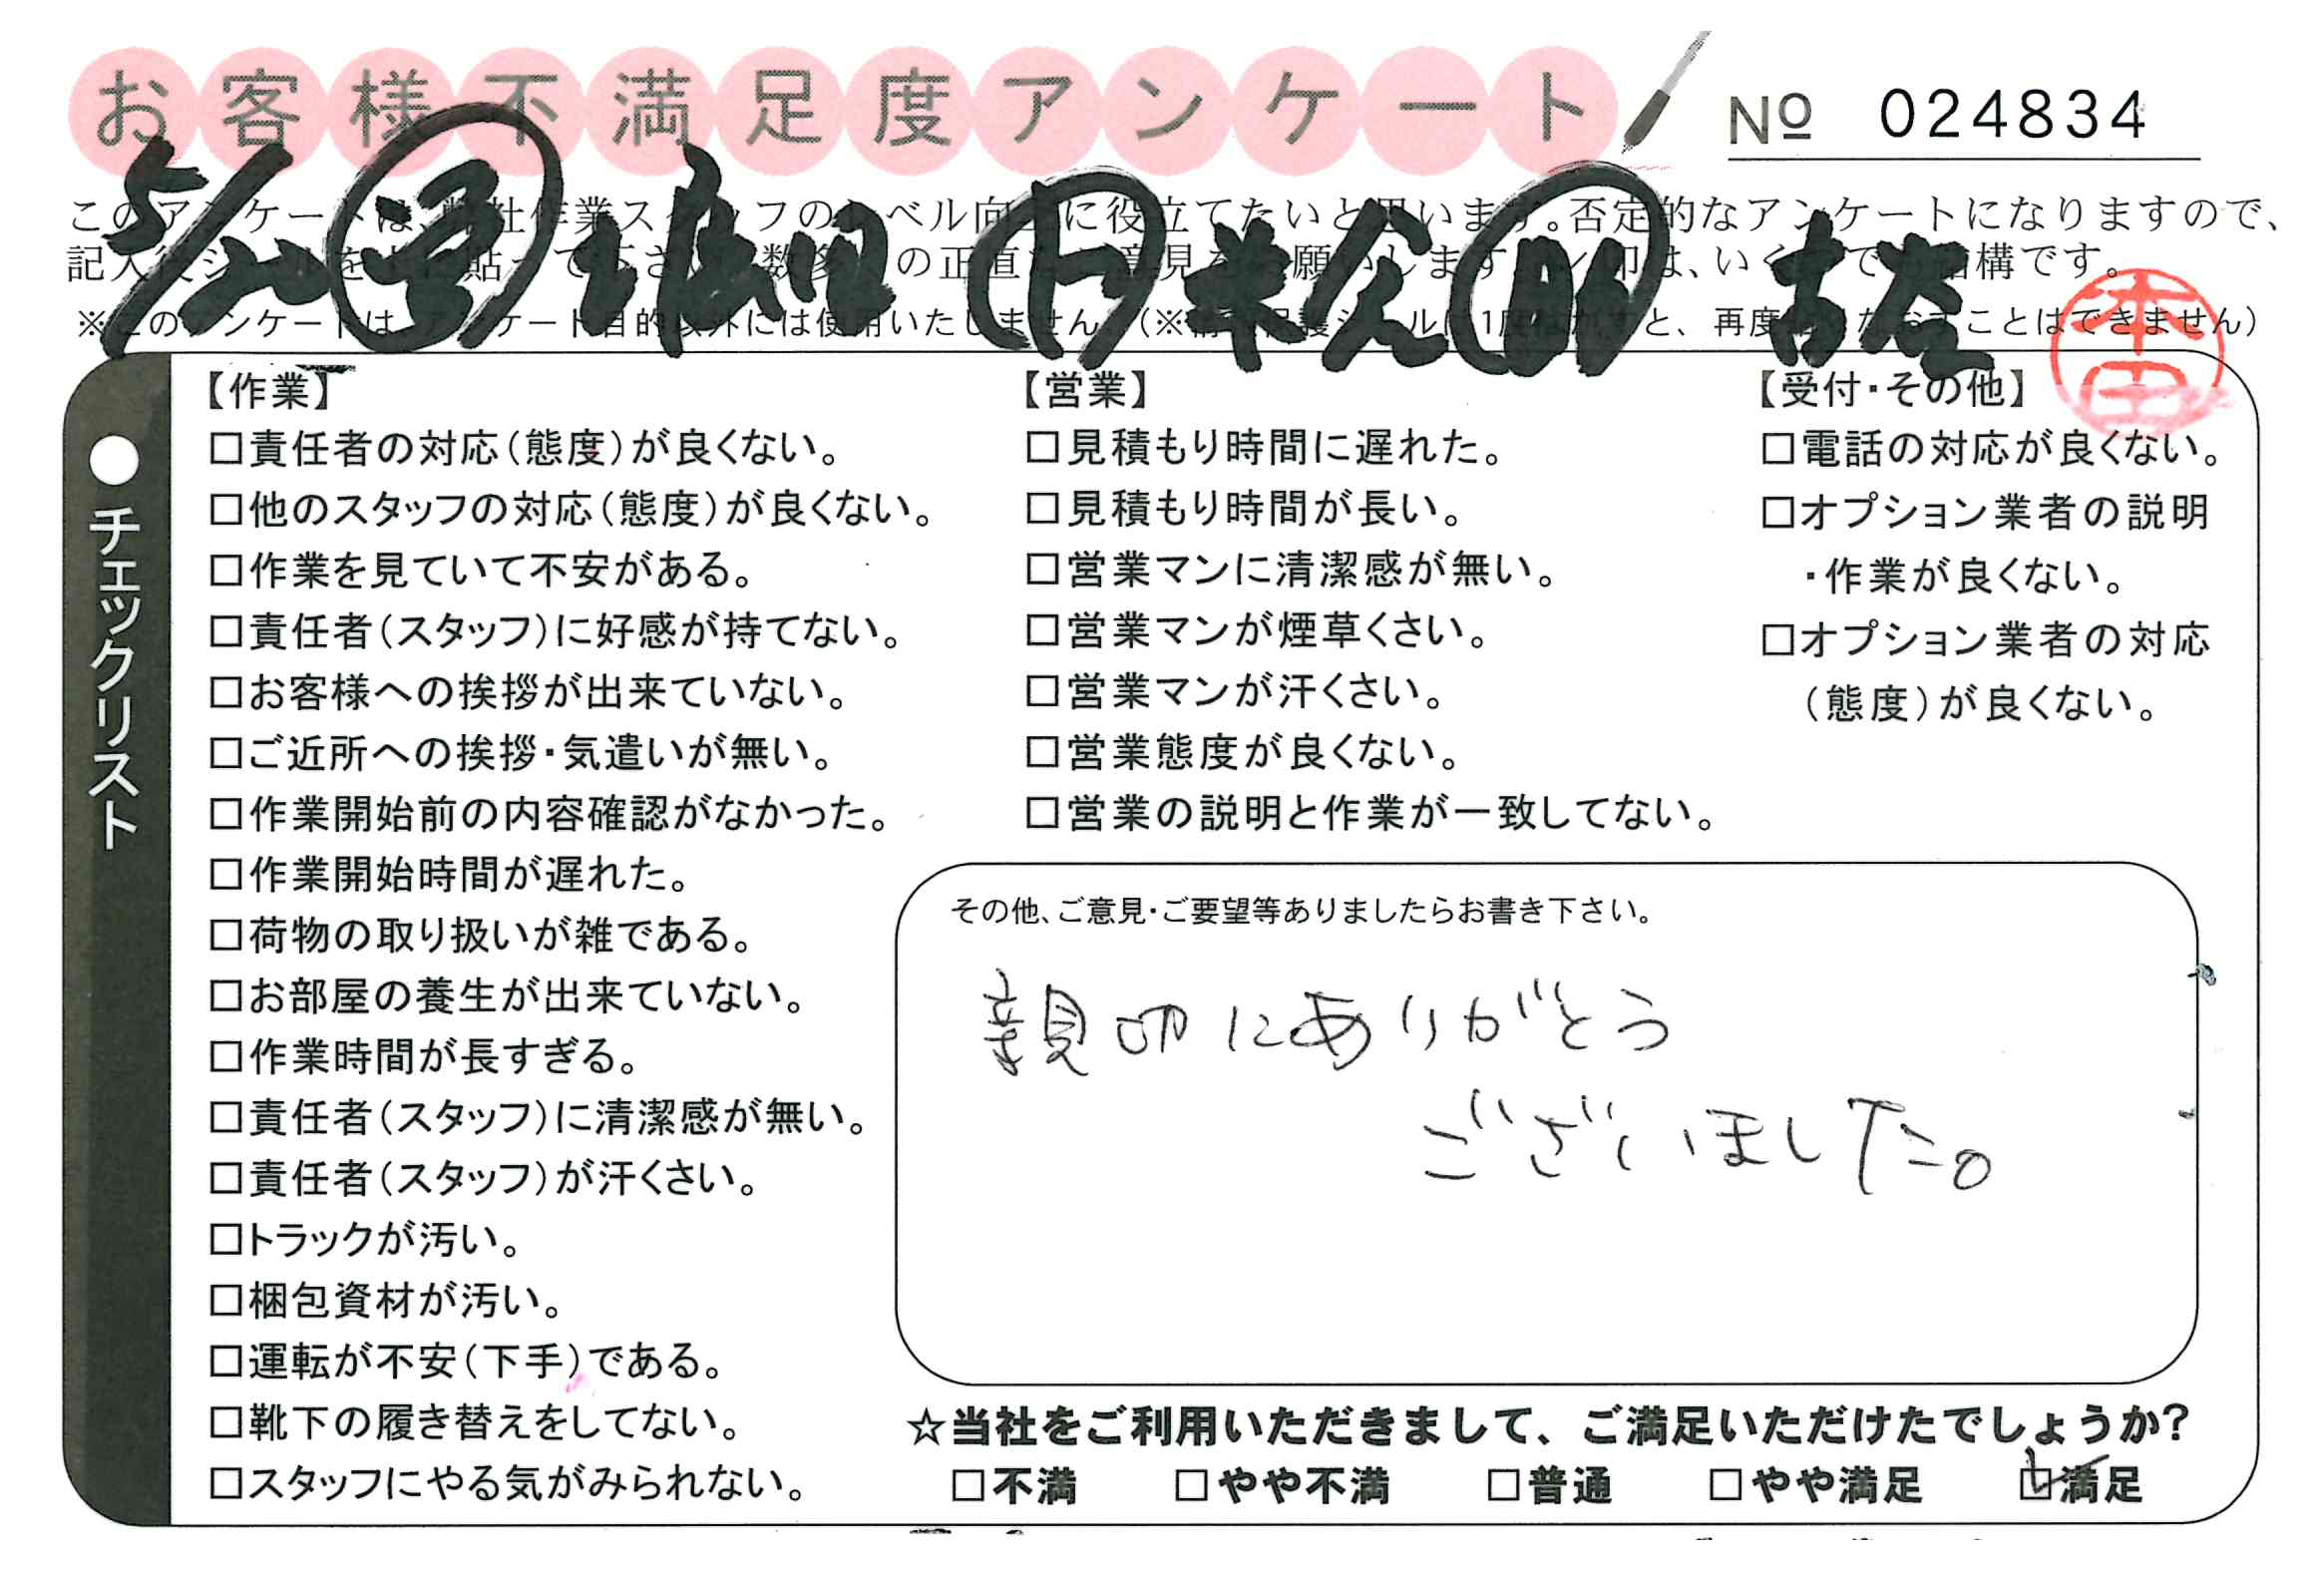 お客様不満足度アンケート
No 024834
※このアンケートは、アンケート目的以外には使用いたしません。
本田
●チェックリスト
【作業】
□責任者の対応(態度)が良くない。
□他のスタッフの対応(態度)が良くない。
□作業を見ていて不安がある。
□責任者(スタッフ)に好感が持てない。
□お客様への挨拶が出来ていない。
□ご近所への挨拶・気遣いが無い。
□作業開始前の内容確認がなかった。
□作業開始時間が遅れた。
□荷物の取り扱いが雑である。
□お部屋の養生が出来ていない。
□作業時間が長すぎる。
□責任者(スタッフ)に清潔感が無い。
□責任者(スタッフ)が汗くさい。
□トラックが汚い。
□梱包資材が汚い。
□運転が不安(下手)である。
□靴下の履き替えをしてない。
□スタッフにやる気がみられない。
【営業】
□見積もり時間に遅れた。
□見積もり時間が長い。
□営業マンに清潔感が無い。
□営業マンが煙草くさい。
□営業マンが汗くさい。
□営業態度が良くない。
□営業の説明と作業が一致してない。
【受付・その他】
□電話の対応が良くない。
□オプション業者の説明
・作業が良くない。
□オプション業者の対応
(態度)が良くない。
その他、ご意見・ご要望等ありましたらお書き下さい。
親切にありがとう
ございました。
☆当社をご利用いただきまして、ご満足いただけたでしょうか?
□不満 □やや不満 □普通 □やや満足 ☑満足